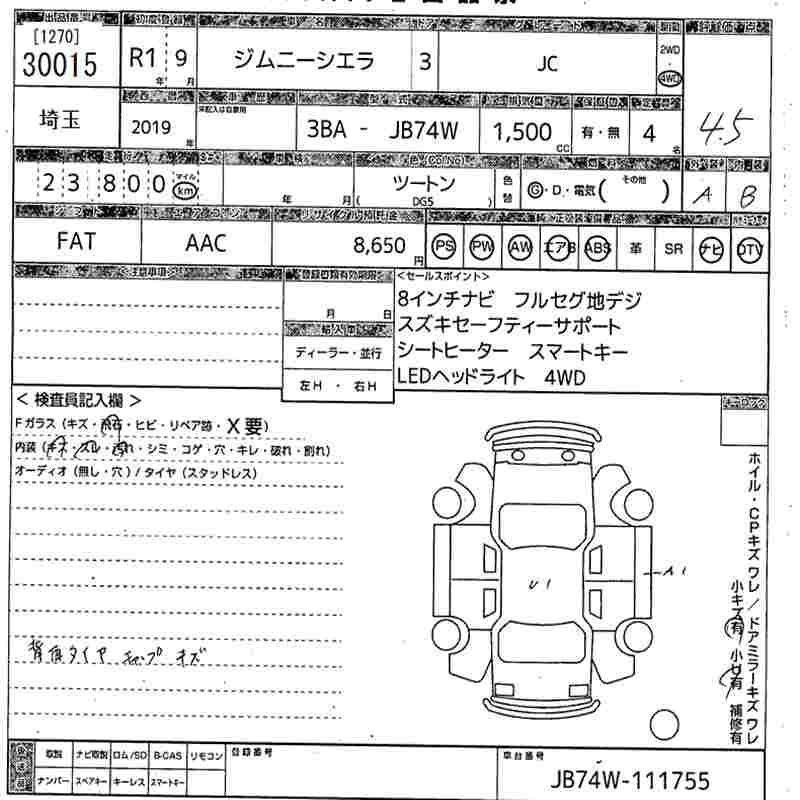 [1270]
30015
初度登録
R1 年 9 月
ジムニーシエラ
3
JC
2WD
・
4WD
評価点
4.5
埼玉
2019 年
車歴
未記入は自家用
型式
3BA - JB74W
排気量
1,500 CC
有・無
定員
4 名
23,800
マイル
km
年 月
色(Co.No)
ツートン
( DG5 )
色替
G・D・電気( その他 )
外装
A
内装
B
シフト
FAT
エアコン
AAC
リサイクル預託金
8,650 円
PS PW AW エアB ABS 革 SR ナビ DTV
注意事項
登録書類有効期限
月 日
輸入車
ディーラー・並行
左H ・ 右H
<セールスポイント>
8インチナビ フルセグ地デジ
スズキセーフティーサポート
シートヒーター スマートキー
LEDヘッドライト 4WD
キーロック
< 検査員記入欄 >
Fガラス (キズ・飛石・ヒビ・リペア跡・X要)
内装 (キズ・スレ・汚れ・シミ・コゲ・穴・キレ・破れ・割れ)
オーディオ (無し・穴) / タイヤ (スタッドレス)
背面タイヤ キャップ キズ
U1
A1
ホイル・CPキズ ワレ / ドアミラーキズ ワレ
小キズ有 小U有 補修有
後送品
取説 ナビ取説 ロム/SD B-CAS リモコン
ナンバー スペアキー キーレス スマートキー
登録番号
車台番号
JB74W-111755